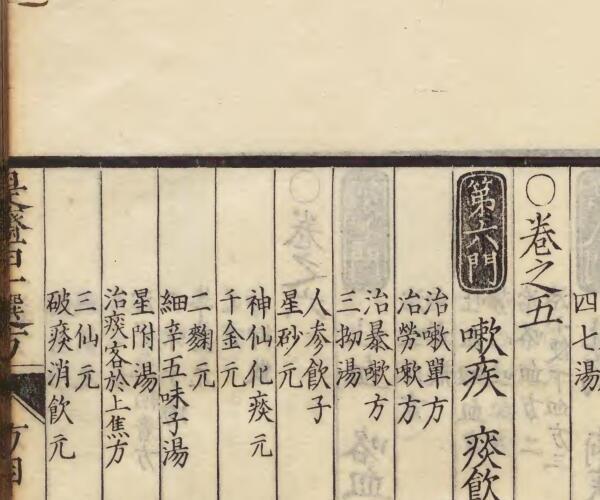 四七湯
○卷之五
第六門 嗽疾 痰飲
治嗽單方
治勞嗽方
治暴嗽方
三拗湯
人參飲子
星砂元
神仙化痰元
千金元
二麴元
細辛五味子湯
星附湯
治痰客於上焦方
三仙元
破痰消飲元
百一選方